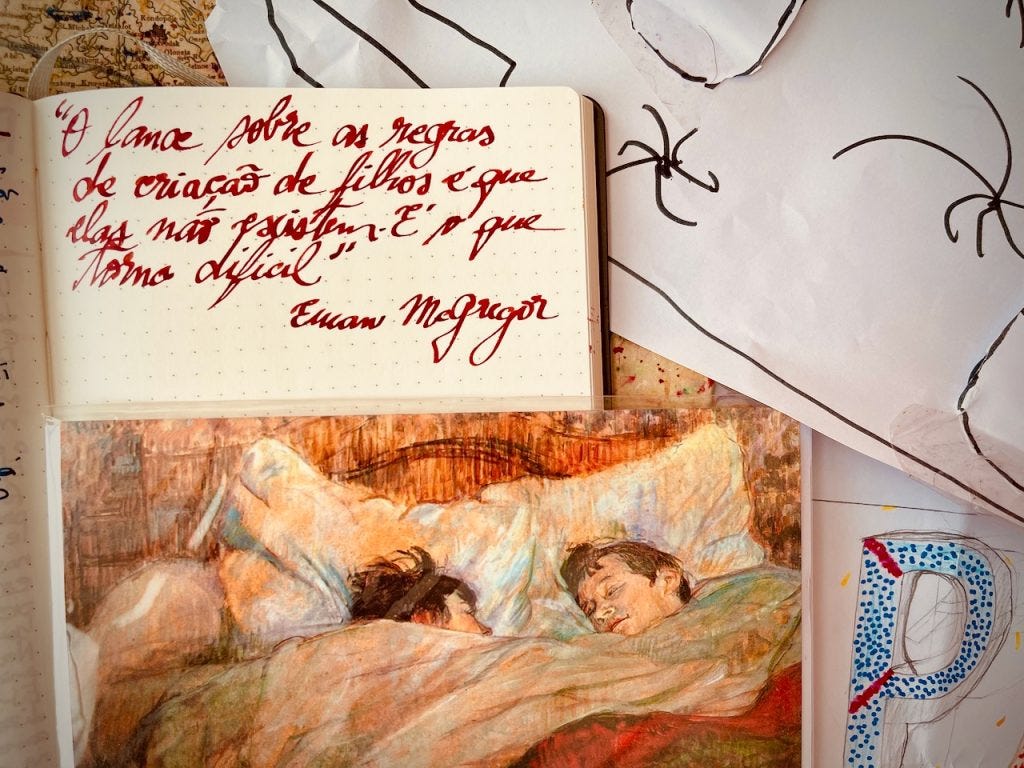 "O lance sobre as regras
de criação de filhos é que
elas não existem. E é o que
torna difícil"
Ewan McGregor
P